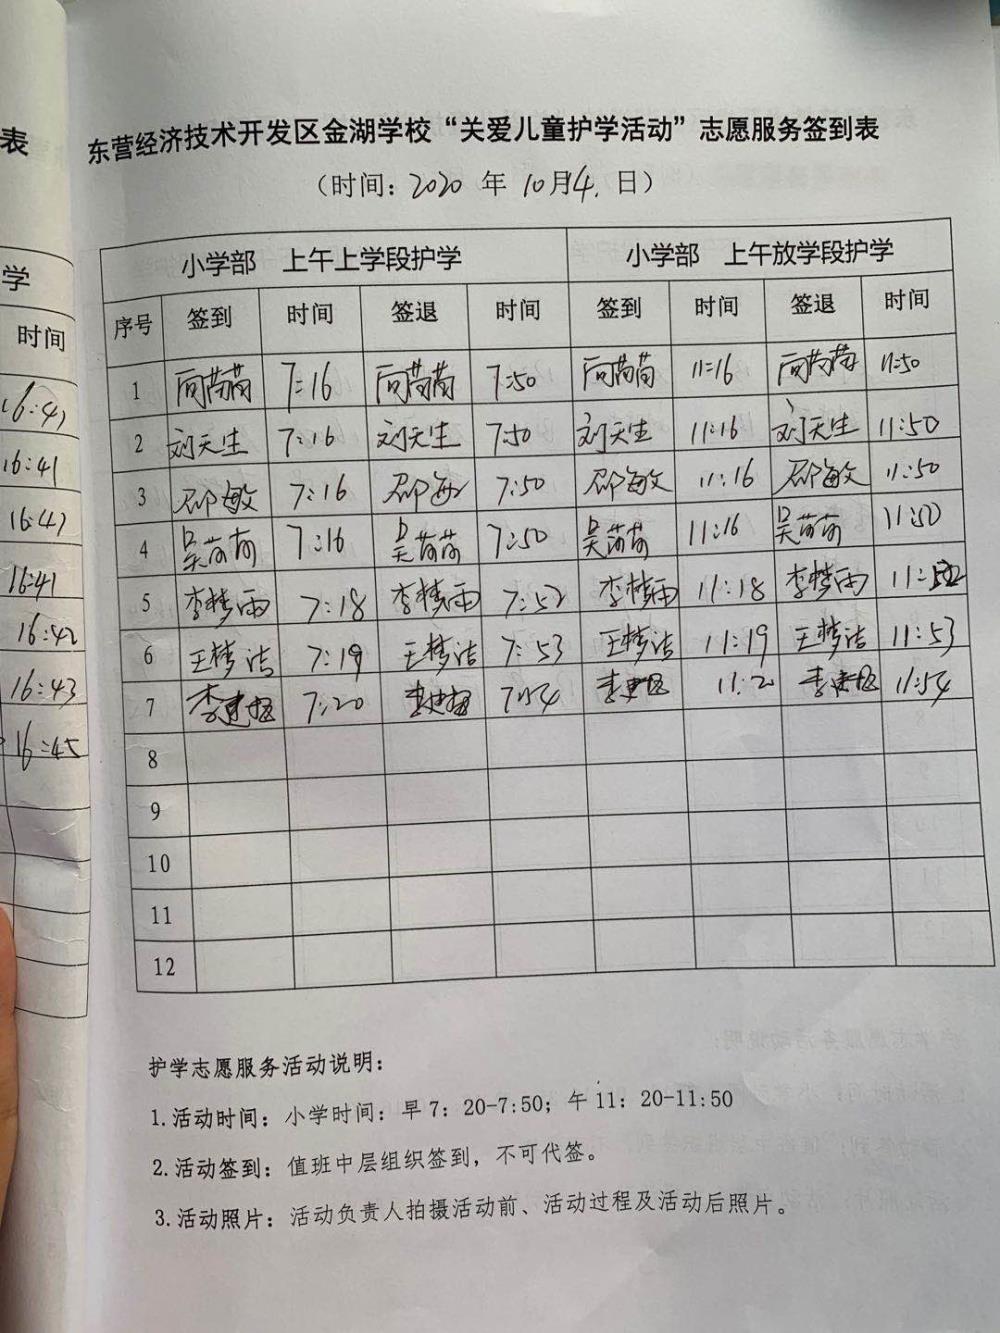 表
学
时间
16:41
16:41
16:41
16:41
16:42
16:43
16:45
东营经济技术开发区金湖学校“关爱儿童护学活动”志愿服务签到表
(时间:2020 年 10月4. 日)
小学部 上午上学段护学 小学部 上午放学段护学
序号 签到 时间 签退 时间 签到 时间 签退 时间
1 7:16 7:50 11:16 11:50
2 刘天生 7:16 刘天生 7:50 刘天生 11:16 刘天生 11:50
3 邵敏 7:16 邵敏 7:50 邵敏 11:16 邵敏 11:50
4 7:16 7:50 11:16 11:50
5 李梦雨 7:18 李梦雨 7:52 李梦雨 11:18 李梦雨 11:52
6 王梦洁 7:19 王梦洁 7:53 王梦洁 11:19 王梦洁 11:53
7 7:20 7:54 11:20 11:54
8
9
10
11
12
护学志愿服务活动说明:
1.活动时间:小学时间:早7:20-7:50;午11:20-11:50
2.活动签到:值班中层组织签到,不可代签。
3.活动照片:活动负责人拍摄活动前、活动过程及活动后照片。